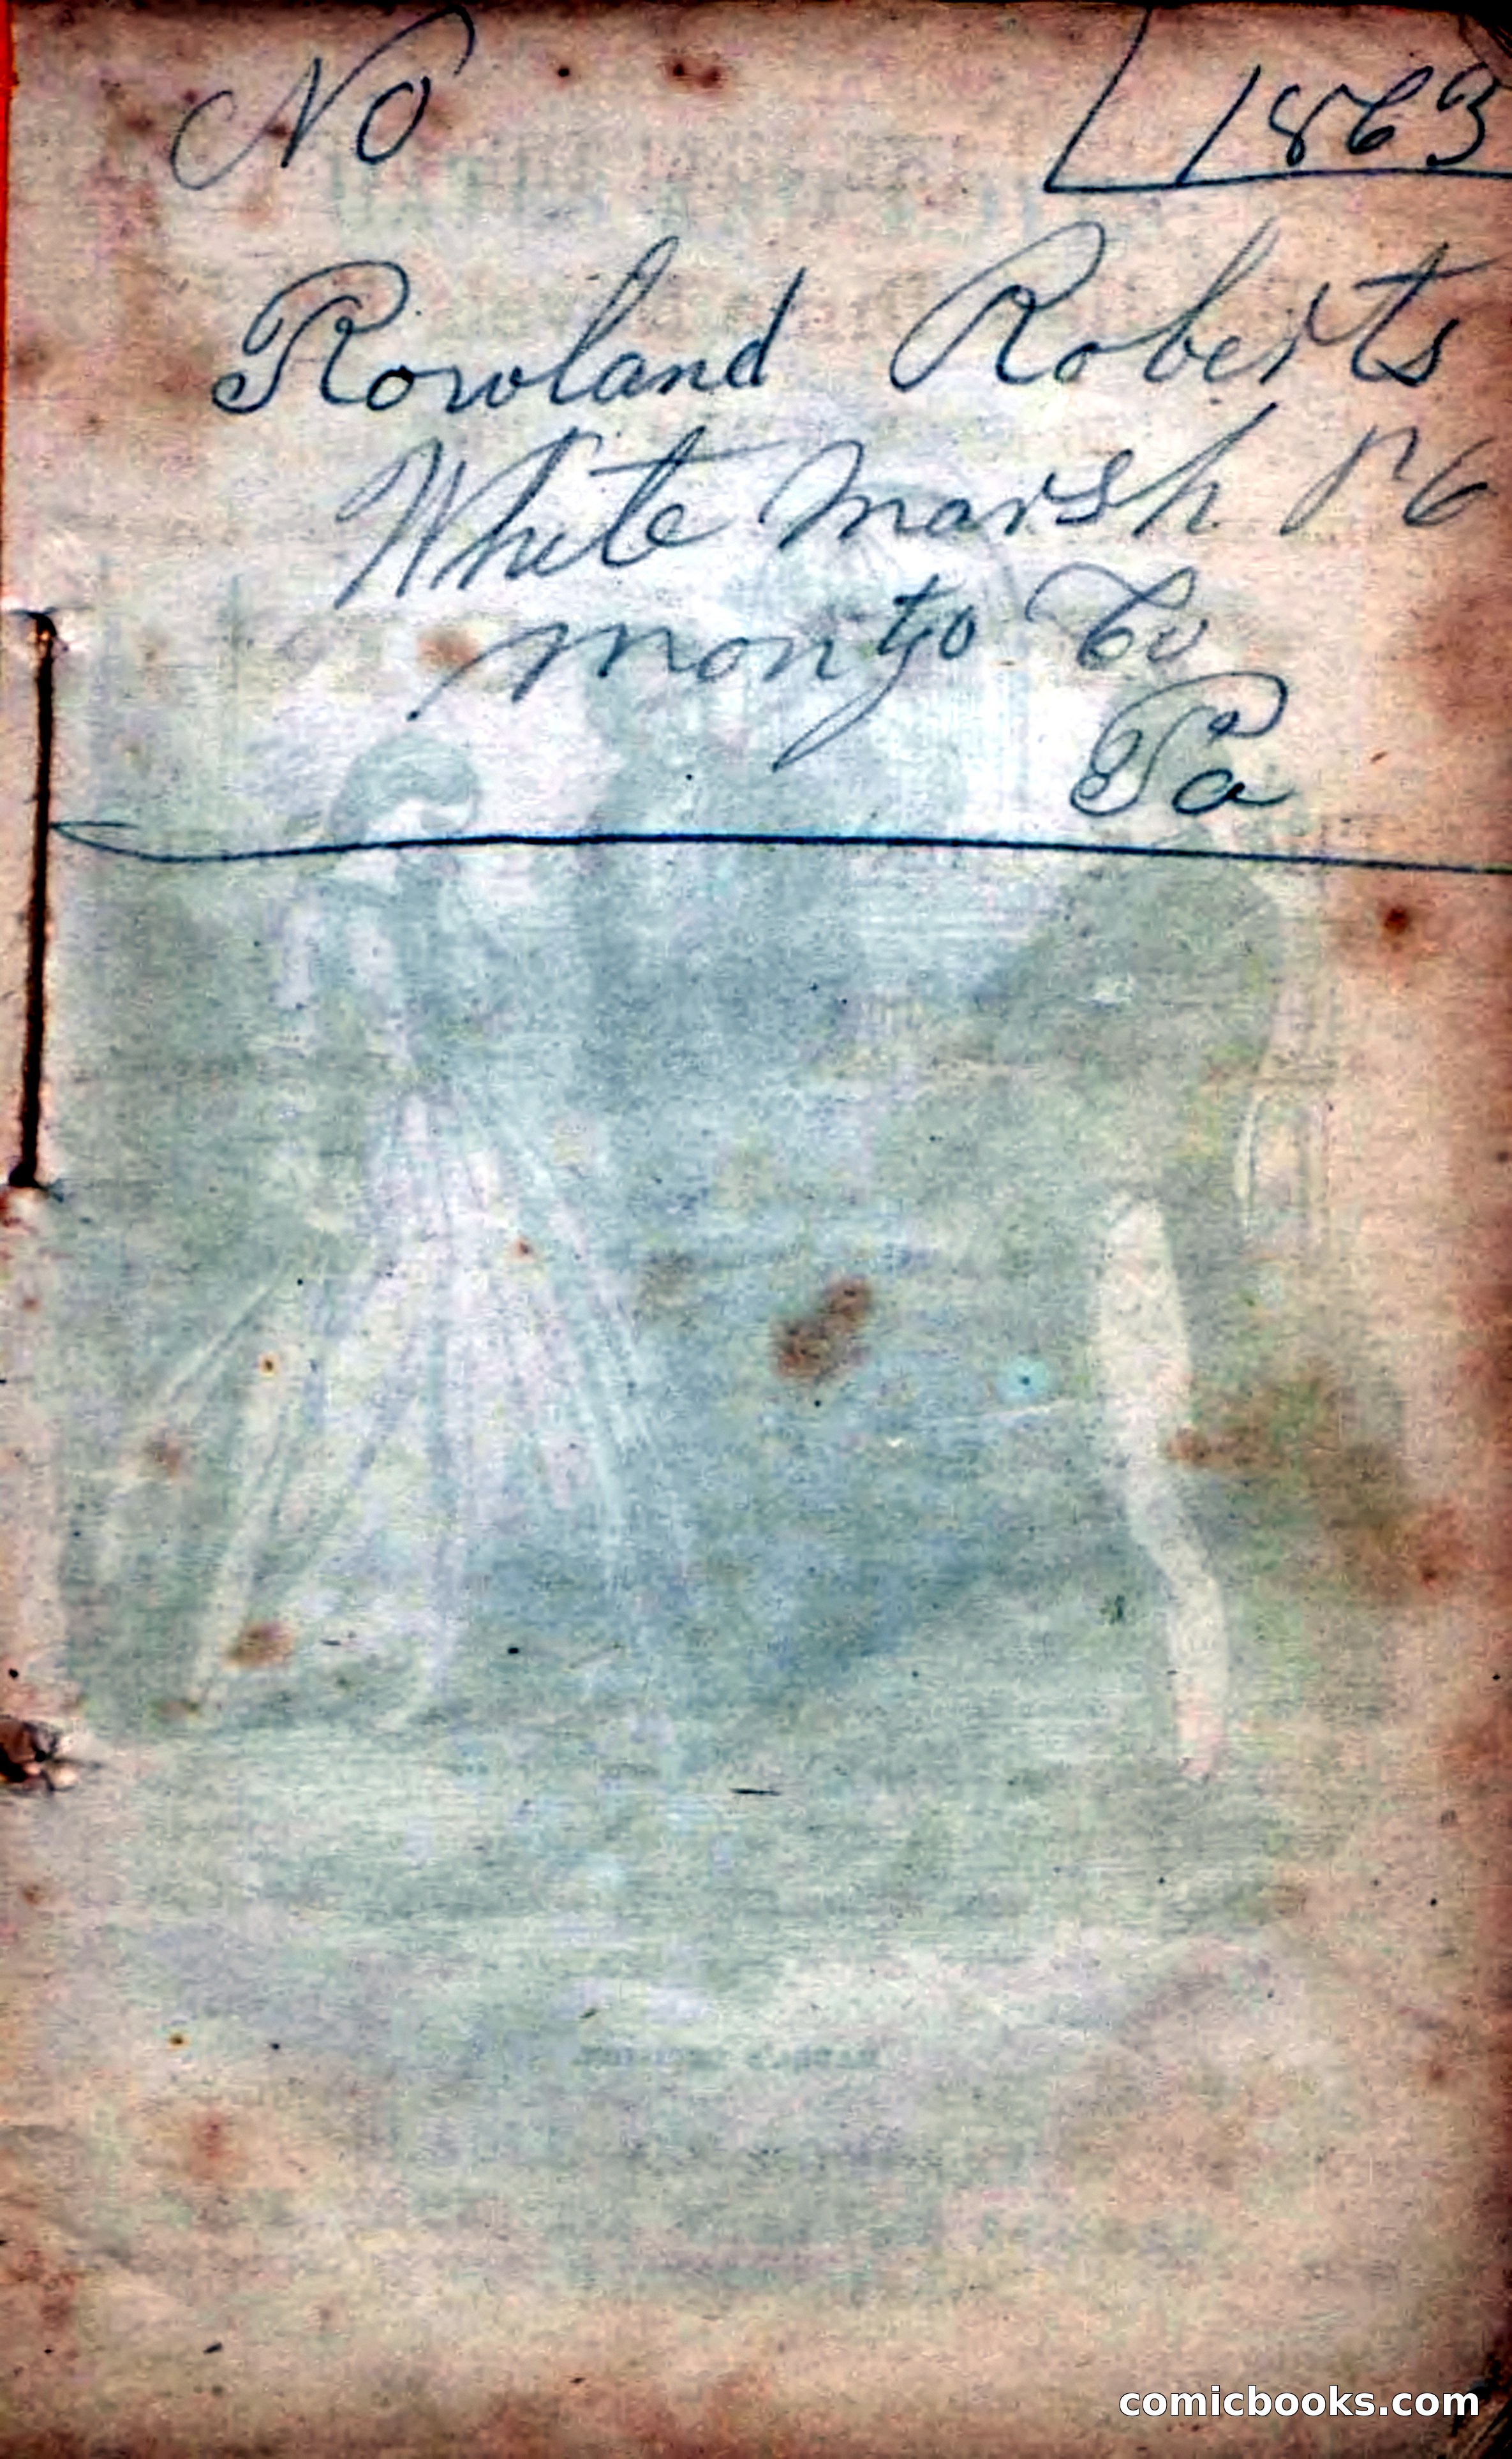 No 1863
Rowland Roberts
White Marsh
Montgo Co
Pa
comicbooks.com